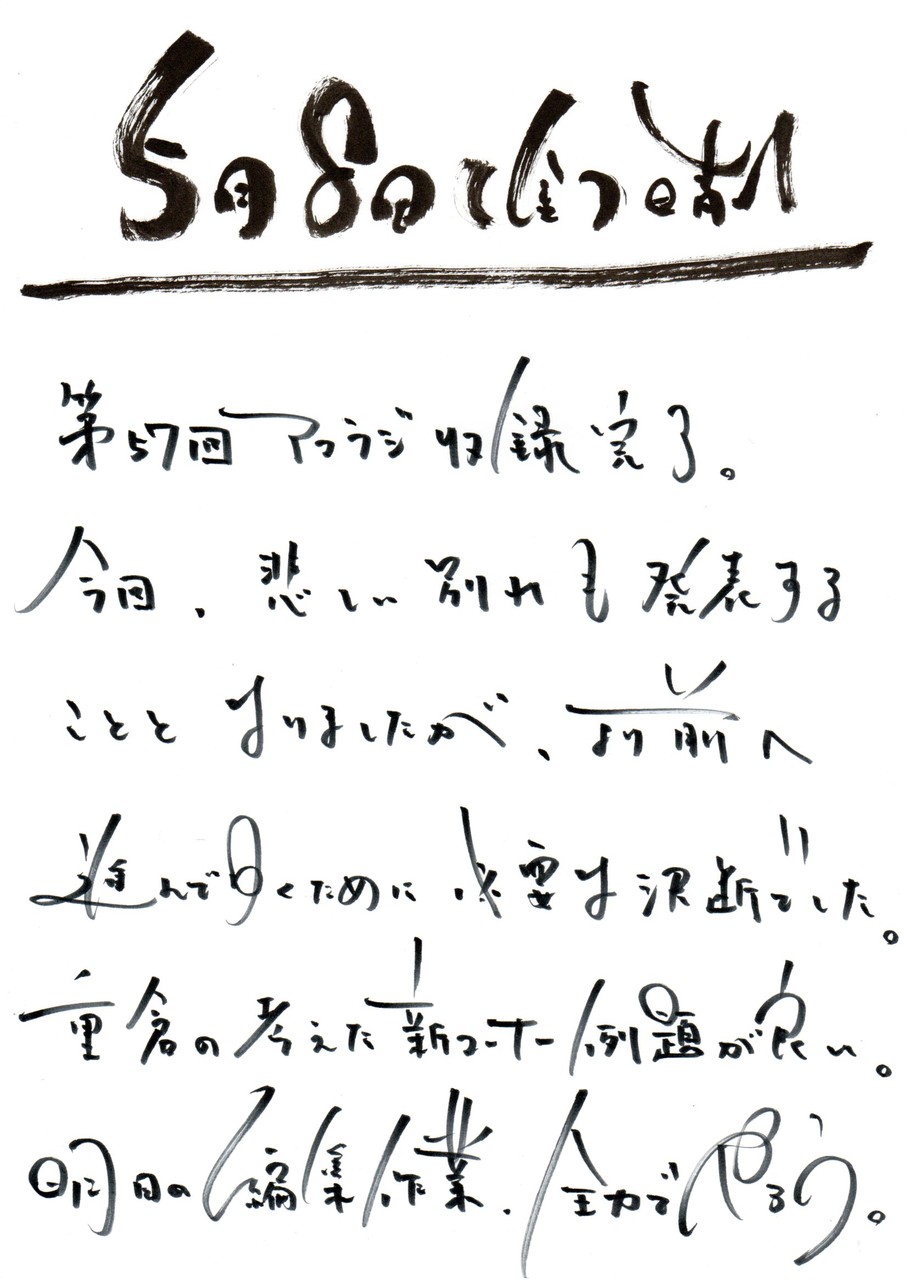 5月8日 金 晴
第57回アクラジ収録完了。
今回、悲しい別れも発表する
こととなりましたが、より前へ
進んで行くために必要な決断でした。
重倉の考えた新コーナー例題が良い。
明日の編集作業、全力でやろう。